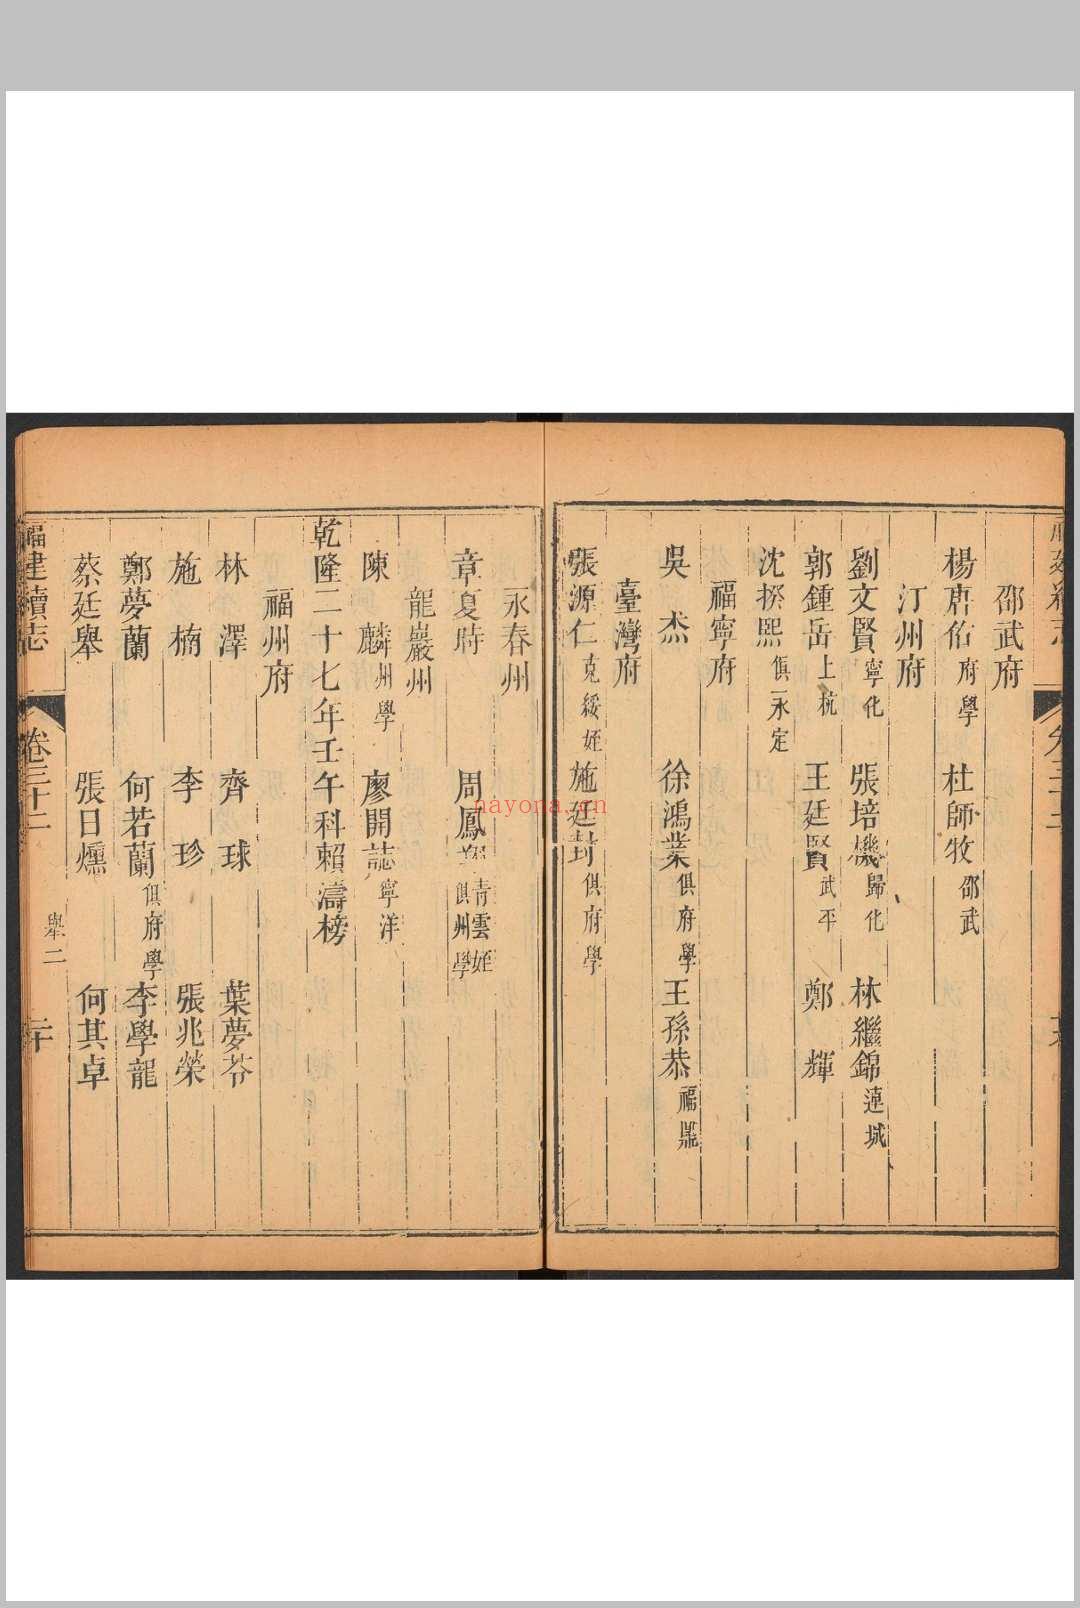 邵武府
楊唐佑 府學 杜師牧 邵武
汀州府
劉文賢 寧化 張培機 歸化 林繼錦 連城
郭鍾岳 上杭 王廷賢 武平 鄭輝
沈揆熙 俱永定
福寧府
吳杰 徐鴻業 俱府學 王孫恭 福鼎
臺灣府
張源仁 克綏姪 施廷封 俱府學
永春州
章夏時 周鳳 青雲姪 俱州學
龍巖州
陳麟 州學 廖開誌 寧洋
乾隆二十七年壬午科賴濤榜
福州府
林澤 齊球 葉夢苓
施楠 李珍 張兆榮
鄭夢蘭 何若蘭 俱府學 李學龍
蔡廷舉 張日燻 何其卓
福建續志 卷三十二 舉二 二十
nayona.cn